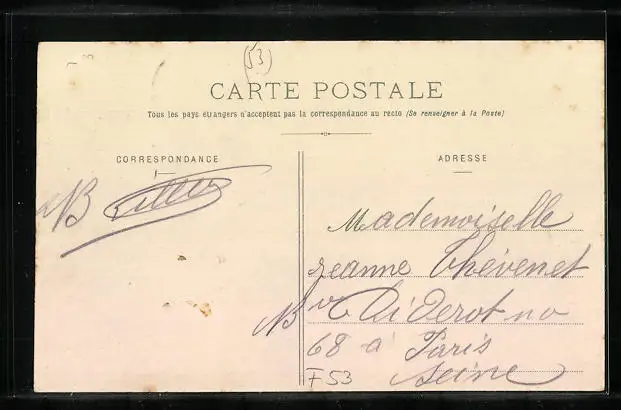 (53)
CARTE POSTALE
Tous les pays étrangers n'acceptent pas la correspondance au recto (Se renseigner à la Poste)
CORRESPONDANCE
ADRESSE
Mademoiselle
Jeanne Thévenet
Diderot no
68 a Paris
F53 Seine